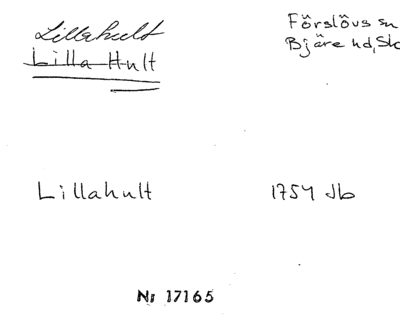 Lillahult
Lilla Hult
Förslövs sn
Bjäre hd, Sk
Lillahult
1754 Jb
Nr 17165